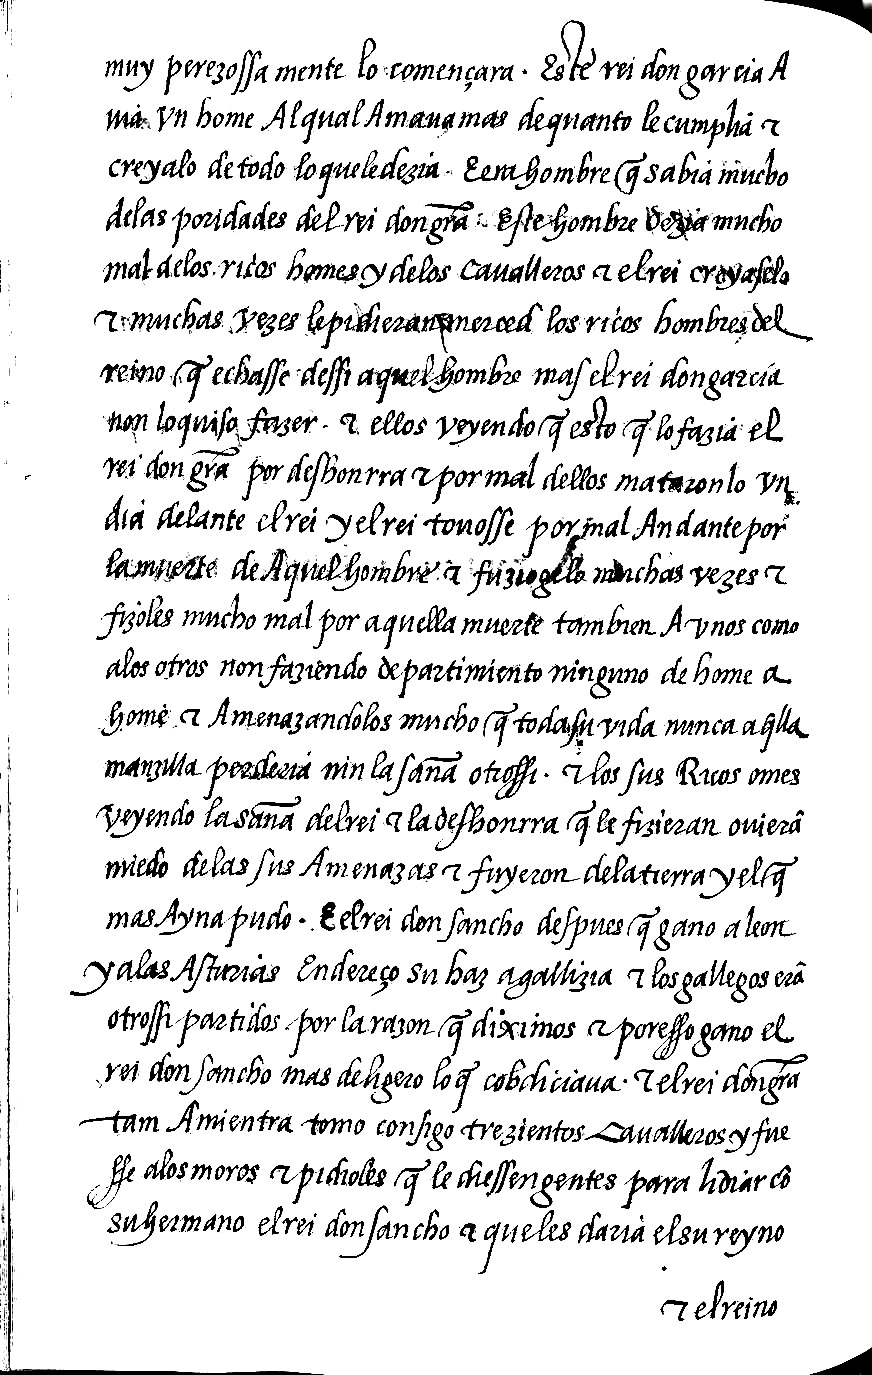 muy perezossa mente lo començara. Este rei don garcia A
uia Vn home Al qual Amaua mas de quanto le cumplia ⁊
creyalo de todo lo que le dezia. E em hombre q̃ sabia mucho
delas poridades del rei don gr̃a. Este hombre dezia mucho
mal de los ricos homes y de los caualleros ⁊ el rei creyaselo
⁊ muchas vezes le pidieran merced los ricos hombres del
reino q̃ echasse dessi aquel hombre mas el rei don garcia
non lo quiso fazer. ⁊ ellos veyendo q̃ esto q̃ lo fazia el
rei don gr̃a por deshonrra ⁊ por mal dellos mataronlo vn
dia delante el rei y el rei touosse por mal Andante por
la muerte de Aquel hombre ⁊ muchas vezes ⁊
fizoles mucho mal por aquella muerte tambien A vnos como
alos otros non faziendo departimiento ninguno de home a
home ⁊ Amenazandolos mucho q̃ toda su vida nunca a q̃lla
manzilla perderia nin la saña otrossi. ⁊ los sus Ricos omes
veyendo la saña del rei ⁊ la deshonrra q̃ le fizieran ouierã
miedo de las sus Amenazas ⁊ fuyeron dela tierra y el q̃
mas Ayna pudo. E el rei don sancho despues q̃ gano a leon
y alas Asturias Endereço su haz a gallizia ⁊ los gallegos erã
otrossi partidos por la razon q̃ diximos ⁊ por esso gano el
rei don sancho mas de ligero lo q̃ cobdiciaua. ⁊ el rei don gr̃a
tam Amientra tomo consigo trezientos Caualleros y fue
sse alos moros ⁊ pidioles q̃ le diessen gentes para lidiar cõ
su hermano el rei don sancho ⁊ que les daria el su reyno
⁊ el reino